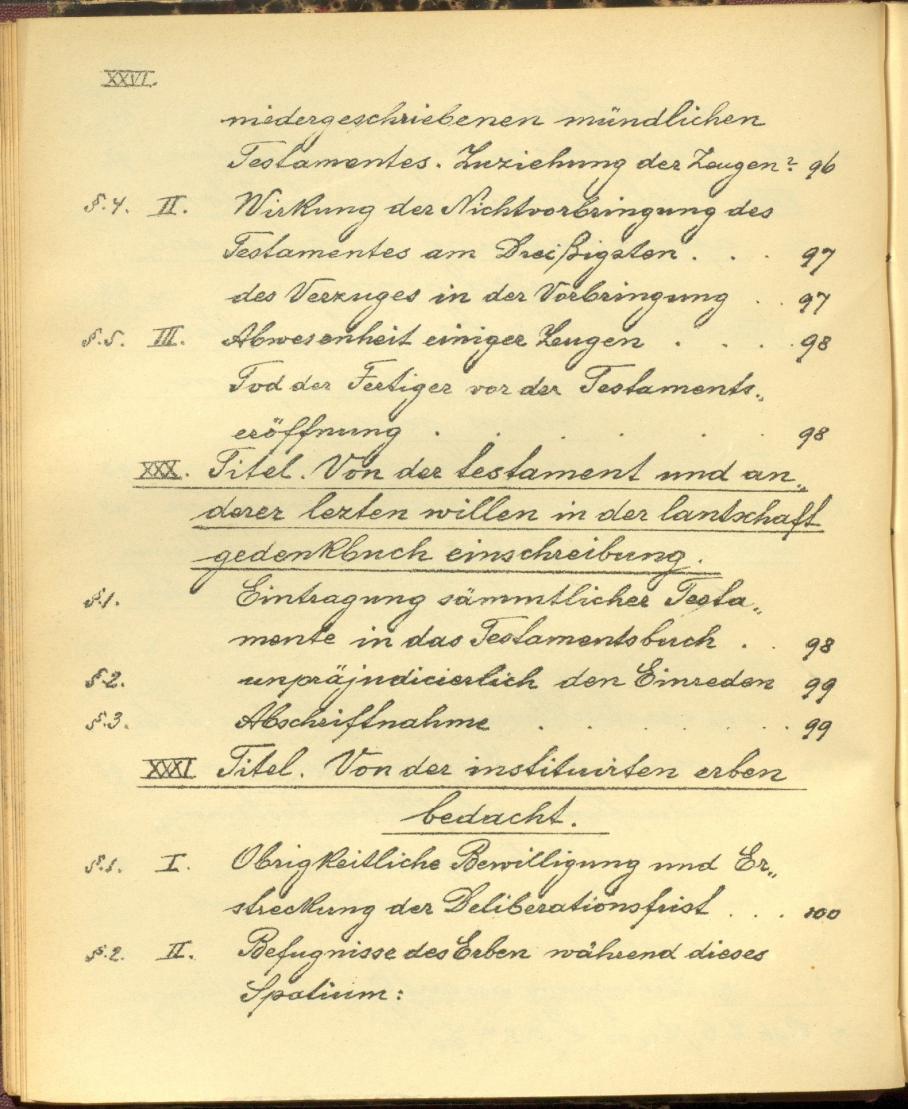 XXVI.
niedergeschriebenen mündlichen
Testamentes. Zuziehung der Zeugen? 96
§.4. II. Wirkung der Nichtvorbringung des
Testamentes am Dreißigsten . . . 97
des Verzuges in der Vorbringung . . 97
§.5. III. Abwesenheit einiger Zeugen . . . . 98
Tod der Fertiger vor der Testaments„
eröffnung . . . . . . 98
XXX. Titel. Von der testament und an„
derer lezten willen in der lantschaft
gedenkbuch einschreibung.
§.1. Eintragung sämmtlicher Testa„
mente in das Testamentsbuch . . 98
§.2. unpräjudicierlich den Einreden 99
§.3. Abschriftnahme . . . . . . . 99
XXXI Titel. Von der instituirten erben
bedacht.
§.1. I. Obrigkeitliche Bewilligung und Er„
streckung der Deliberationsfrist . . . 100
§.2. II. Befugnisse des Erben während dieses
Spatium: